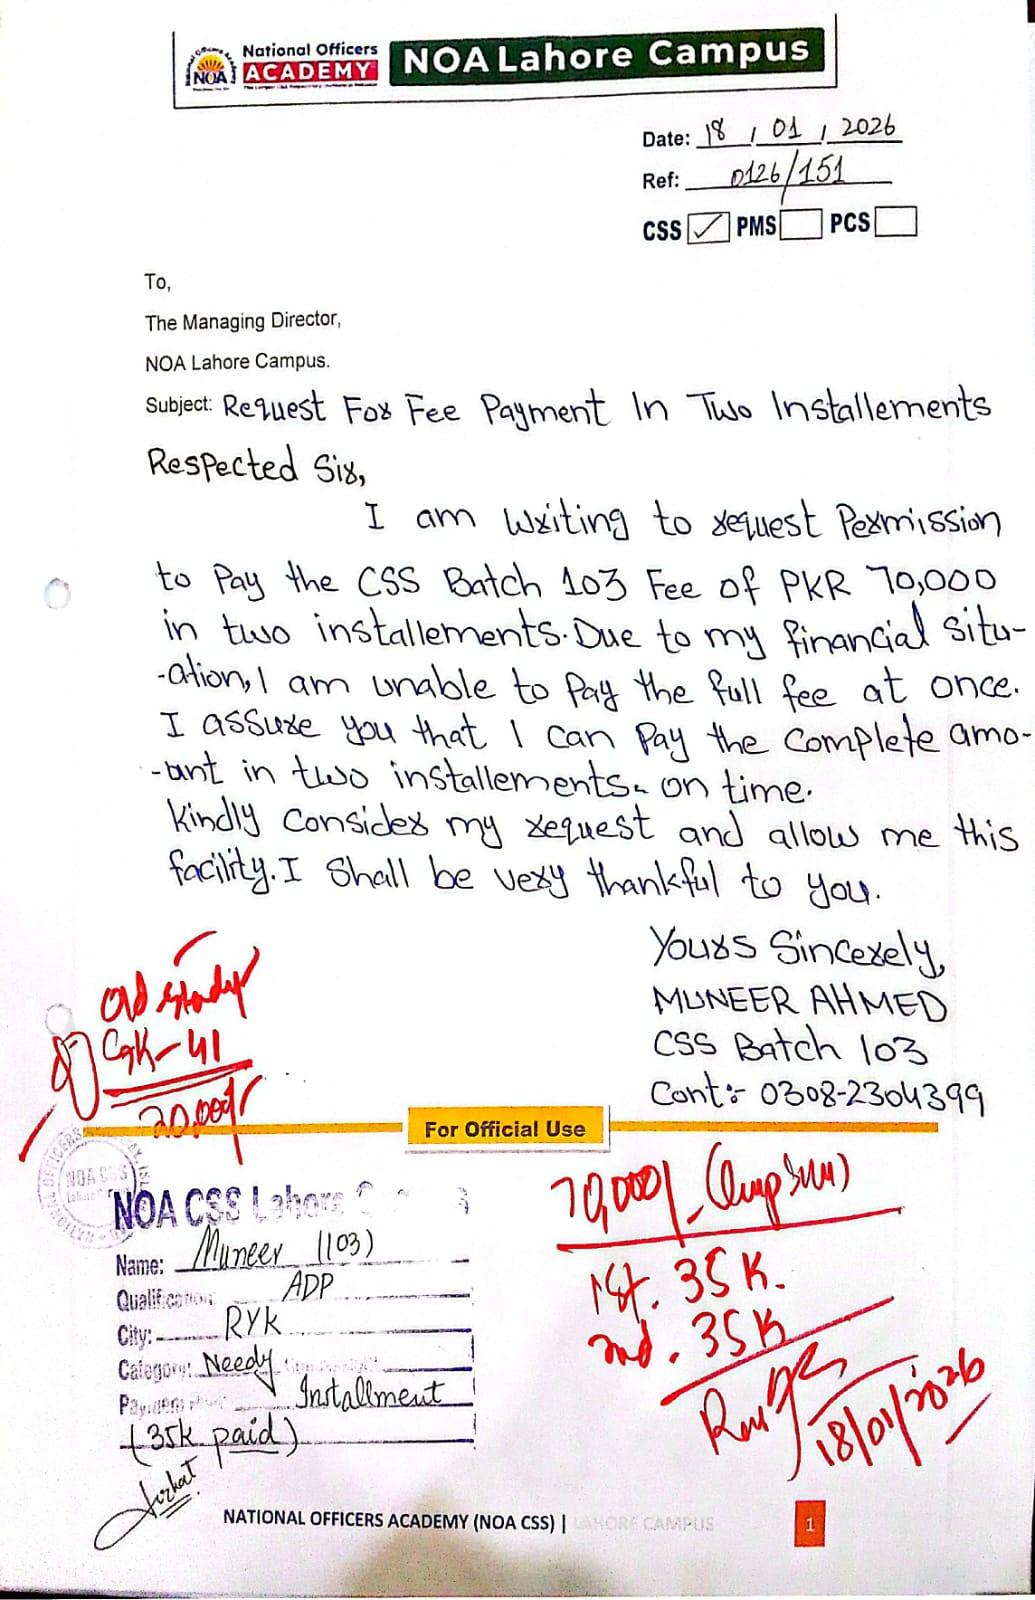 National Officers
ACADEMY
NOA
NOA Lahore Campus
Date: 18 / 01 / 2026
Ref: 0126/151
CSS ✓ PMS PCS
To,
The Managing Director,
NOA Lahore Campus.
Subject: Request For Fee Payment In Two Installements
Respected Sir,
I am writing to request Permission
to Pay the CSS Batch 103 Fee of PKR 70,000
in two installements. Due to my financial situ-
-ation, I am unable to Pay the full fee at once.
I assure you that I can Pay the Complete amo-
-unt in two installements. on time.
Kindly Consider my request and allow me this
facility. I Shall be very thankful to you.
Yours Sincerely,
MUNEER AHMED
CSS Batch 103
Cont:- 0308-2304399
Old study
GK-41
20,000/
For Official Use
NOA CSS Lahore
Name: Muneer (103)
Qualification ADP
City: RYK
Category: Needy
Installment
(35k paid)
70,000/- (lump sum)
1st. 35K.
2nd. 35K
18/01/2026
NATIONAL OFFICERS ACADEMY (NOA CSS) | LAHORE CAMPUS
1